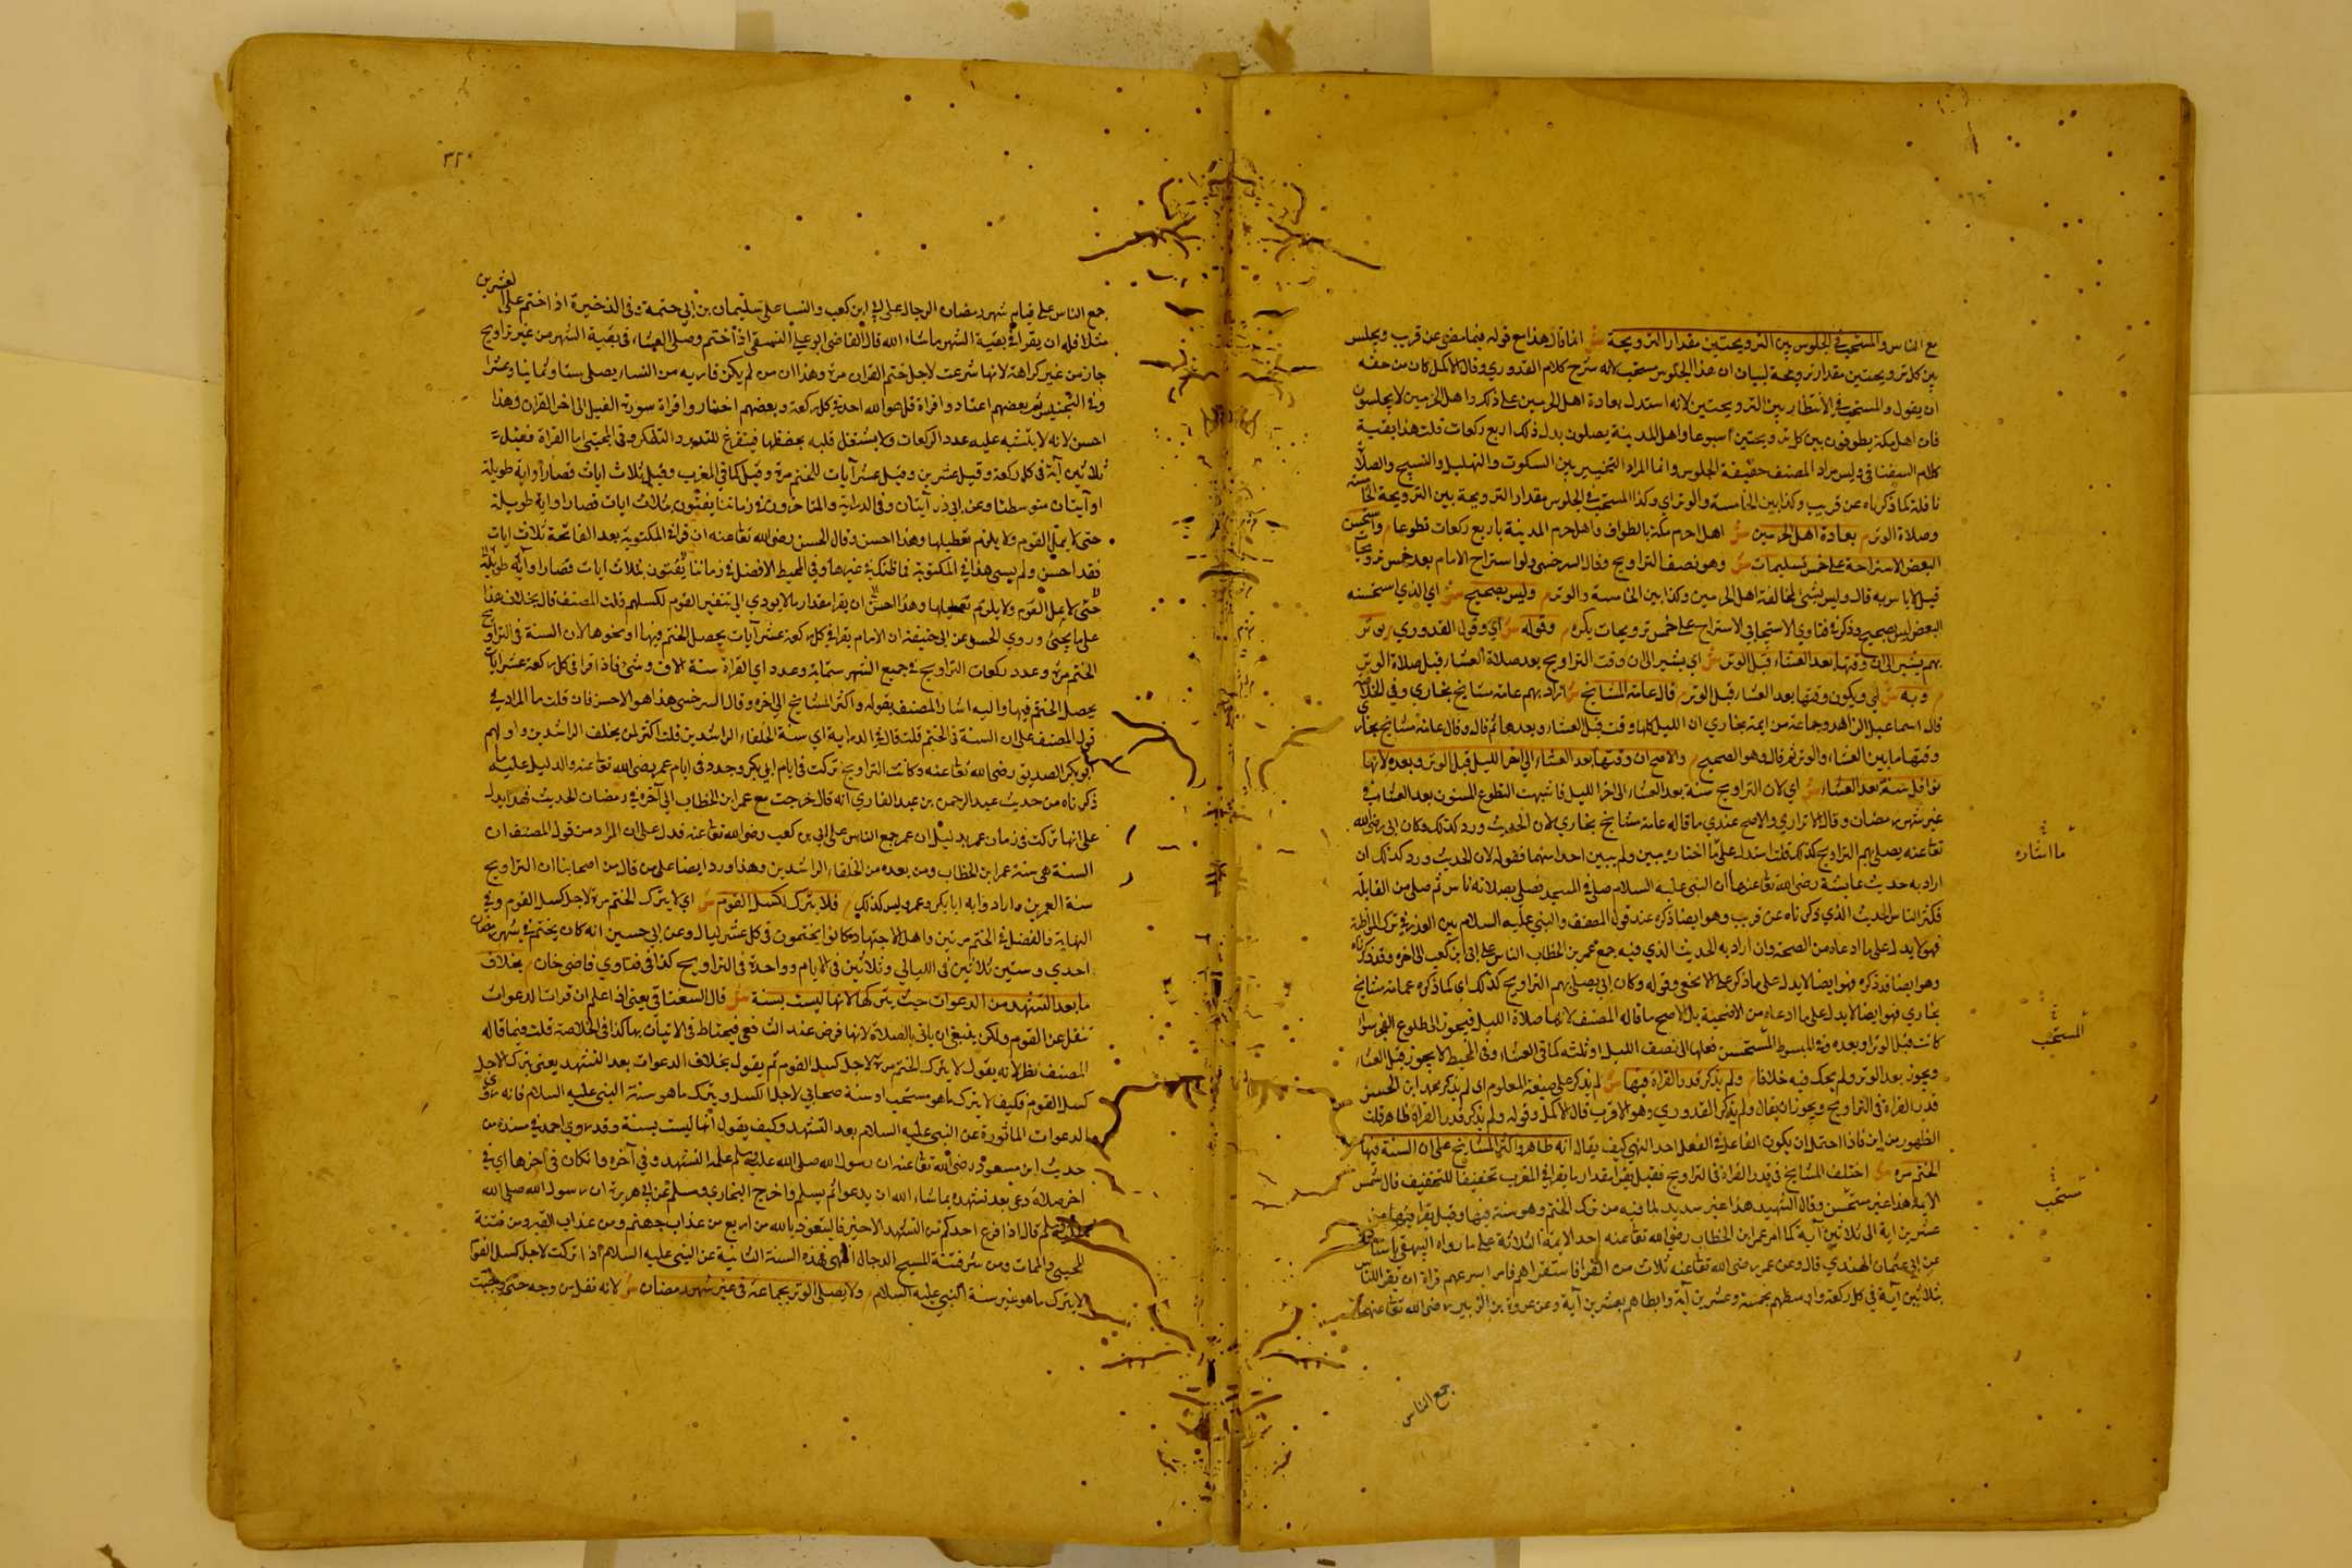 مع الناس والمستحب في الجلوس بين الترويحتين مقدار الترويحة ش انما قال هذا مع قوله فيما مضى عن قرب ويجلس
بين كل ترويحتين مقدار ترويحة لبيان ان هذا الجلوس مستحب لانه شرح كلام القدوري وقال الاكمل كان من حقه
ان يقول والمستحب في الانتظار بين الترويحتين لانه استدل بعادة اهل الحرمين على ذلك واهل الحرمين لا يجلسون
فان اهل مكة يطوفون بين كل ترويحتين اسبوعا واهل المدينة يصلون بدل ذلك اربع ركعات قلت هذا بقية
كلام السغناقي وليس مراد المصنف حقيقة الجلوس وانما المراد التخيير بين السكوت والتهليل والتسبيح والصلاة
نافلة كما ذكرناه عن قريب وكذا بين الخامسة والوتر اي وكذا المستحب في الجلوس مقدار الترويحة بين الترويحة الخامسة
وصلاة الوتر م بعادة اهل الحرمين ش اهل احرم مكة بالطواف واهل حرم المدينة باربع ركعات تطوعا م واستحسن
البعض الاستراحة على خمس تسليمات ش وهو نصف التراويح وقال السرخسي ولو استراح الامام بعد خمس ترويحات
قيل لا باس به قال وليس بشئ لمخالفة اهل الحرمين وكذا بين الخامسة والوتر م وليس بصحيح ش اي الذي استحسنه
البعض ليس بصحيح وذكر في فتاوي الاستيجابي الاستراح على خمس ترويحات يكره م وقوله ش اي وقول القدوري م يوتر
بهم يشير الى ان وقتها بعد العشاء قبل الوتر ش اي يشير الى ان وقت التراويح بعد صلاة العشاء قبل صلاة الوتر
م وبه ش اي ويكون وقتها بعد العشاء قبل الوتر م قال عامة المشايخ ش اراد بهم عامة مشايخ بخاري وفي الخلاصة
قال اسماعيل الزاهد وجماعة من ايمة بخاري ان الليل كلها وقت قبل العشاء وبعدها ثم قال وقال عامة مشايخ بخاري
وقتها ما بين العشاء والوتر ثم قال وهو الصحيح م والاصح ان وقتها بعد العشاء الى اخر الليل قبل الوتر وبعده لانها
نوافل سنة بعد العشاء ش اي لان التراويح سنة بعد العشاء الى اخر الليل فاشبهت التطوع المسنون بعد العشاء في
غير شهر رمضان وقال الاتراري والاصح عندي ما قاله عامة مشايخ بخاري لان الحديث ورد كذلك وكان ابي رضي الله
تعا عنه يصلي بهم التراويح كذلك قلت استدل على ما اختاره مبين ولم يبين احد منهما فقوله لان الحديث ورد كذلك ان
اراد به حديث عايشة رضي الله تعا عنها ان النبي عليه السلام صلى في المسجد فصلى بصلاته ناس ثم صلى من القابلة
فكثر الناس الحديث الذي ذكرناه عن قريب وهو ايضا ذكره عند قول المصنف والنبي عليه السلام بين العذر في ترك المواظبة
فهو لا يدل على ما ادعاه من الصحة وان اراد به الحديث الذي فيه جمع عمر بن الخطاب الناس على ابي ابن كعب الى اخره وقد ذكرناه
وهو ايضا قد ذكره فهو ايضا لا يدل على ما ذكر على ما لا يخفى وقوله وكان ابي يصلي بهم التراويح كذلك اي كما ذكره عامة مشايخ
بخاري فهو ايضا لا يدل على ما ادعاه من الاصحية بل الاصح ما قاله المصنف لانها صلاة الليل فيجوز الى طلوع الفجر سواء
كانت قبل الوتر او بعده وفي المبسوط المستحسن فعلها الى نصف الليل او ثلثه كما في العشاء وفي المحيط لا يجوز قبل العشاء
ويجوز بعد الوتر ولم يحك فيه خلافا م ولم يذكر قدر القراة فيها ش لم يذكر على صيغة المعلوم اي لم يذكر محمد ابن الحسن
قدر القراة في التراويح ويجوز ان يقال ولم يذكر القدوري وهو الاقرب قال الاكمل وقوله ولم يذكر قدر القراة ظاهر قلت
الظهور من اين فاذا احتمل ان يكون الفاعل في الفعل احد النهي كيف يقال انه ظاهر واكثر المشايخ على ان السنة فيها
الختم مرة ش اختلف المشايخ في قدر القراة في التراويح فقيل يقرا مقدار ما يقرا في المغرب تخفيفا للتخفيف قال شمس
الايمة هذا غير مستحسن وقال الشهيد هذا غير سديد لما فيه من ترك الختم وهو سنة فيها وقيل يقرا فيها من
عشرين اية الى ثلاثين آية كما امر عمر ابن الخطاب رضي الله تعا عنه احد الايمة الثلاثة على ما رواه البيهقي باسناده
عن ابي عثمان الهندي قال دعى عمر رضي الله تعا عنه ثلاث من القرا فاستقراهم فامر اسرعهم قراة ان يقرا للناس
بثلاثين آية في كل ركعة واوسطهم بخمسة وعشرين آية وابطاهم بعشرين آية وعن عروة بن الزبير رضي الله تعا عنهما
ما اشاره
المستحب
مستحب
جمع الناس
٣٢٠
جمع الناس على قيام شهر رمضان الرجال على ابي ابن كعب والنسا على سليمان بن ابي حتمة وفي الذخيرة اذا ختم على العشرين
مثلا فله ان يقرا في بقية الشهر ما شاء الله قال القاضي ابو علي النسفي اذا ختم وصلى العشاء في بقية الشهر من غير تراويح
جاز من غير كراهة لانها شرعت لاجل ختم القران مرة وهذا ان من لم يكن قاريه من النساء يصلي ستا وثمانيا وعشرا
وفي التجنيس ثم بعضهم اعتادوا قراة قل هو الله احد في كل ركعة وبعضهم اختاروا قراة سورة الفيل الى اخر القران وهذا
احسن لانه لا يشتبه عليه عدد الركعات ولا يشتغل قلبه بحفظها فيتفرغ للتدبر والتفكر وفي المجتبى اما القراة فقيل
ثلاثين آية في كل ركعة وقيل عشرين وقيل عشر آيات للختم مرة وقيل كما في المغرب وقيل ثلاث ايات قصارا او اية طويلة
او آيتان متوسطتا وعن ابي ذر آيتان وفي الدراية والمتاخرون في زماننا يفتون بثلاث ايات قصار او اية طويلة
حتى لا يمل القوم ولا يلزم تعطيلها وهذا احسن وقال الحسن رضي الله تعا عنه ان قرا في المكتوبة بعد الفاتحة ثلاث ايات
فقد احسن ولم يسئ هذا في المكتوبة فما ظنك في غيرها وفي المحيط الافضل في زماننا يفتون بثلاث ايات قصارا او آية طويلة
حتى لا يمل القوم ولا يلزم تعطيلها وهذا احسن ان يقرا مقدار ما لا يودي الى تنفير القوم لكسلهم قلت المصنف قال بخلاف هذا
على ما يجئ وروي الحسن عن ابي حنيفة ان الامام يقرا في كل ركعة عشر آيات يحصل الختم فيها او نحوها لان السنة في التراويح
الختم مرة وعدد ركعات التراويح في جميع الشهر ستماية وعدد اي القراة ستة الاف وشئ فاذا قرا في كل ركعة عشر ايات
يحصل الختم فيها واليه اشار المصنف بقوله واكثر المشايخ الى اخره وقال السرخسي هذا هو الاحسن فان قلت ما المراد في
قول المصنف على ان السنة في الختم قلت قال في الدراية اي سنة الخلفاء الراشدين قلت اكثر لمن يخلف الراشدين واولهم
ابو بكر الصديق رضي الله تعا عنه وكانت التراويح تركت في ايام ابي بكر وجدد في ايام عمر رضي الله تعا عنه والدليل عليه ما
ذكرناه من حديث عبد الرحمن بن عبد القاري انه قال خرجت مع عمر ابن الخطاب الى آخره في رمضان الحديث فهذا يدل
على انها تركت في زمان عمر بدليل ان عمر جمع الناس على ابي بن كعب رضي الله تعا عنه فدل على ان المراد من قول المصنف ان
السنة هي سنة عمر ابن الخطاب ومن بعده من الخلفاء الراشدين وهذا ورد ايضا على من قال من اصحابنا ان التراويح
سنة العمرين واراد وابه ابا بكر وعمر وليس كذلك م فلا يترك لكسل القوم ش اي لا يترك الختم مرة لاجل كسل القوم وفي
النهاية والفضل في الختم مرتين واهل الاجتهاد كانوا يختمون في كل عشر ليال وعن ابي حسين انه كان يختم في شهر رمضان
احدي وستين ثلاثين في الليالي وثلاثين في الايام وواحدة في التراويح كذا في فتاوي قاضي خان م بخلاف
ما بعد التشهد من الدعوات حيث يتركها لانها ليست بسنة ش قال السغناقي يعني اذا علم ان قراة الدعوات
تثقل عن القوم ولكن ينبغي ان ياتي بالصلاة لانها فرض عند الشافعي فيحتاط في الاتيان بها كذا في الخلاصة قلت فيما قاله
المصنف نظر لانه يقول لا يترك الختم مرة لاجل كسل القوم ثم يقول بخلاف الدعوات بعد التشهد يعني يترك لاجل
كسل القوم فكيف لا يترك ما هو مستحب او سنة صحابي لاجل الكسل ويترك ما هو سنة النبي عليه السلام فانه روي
الدعوات الماثورة عن النبي عليه السلام بعد التشهد وكيف يقول انها ليست بسنة وقد روي احمد في مسنده من
حديث ابن مسعود رضي الله تعا عنه ان رسول الله صلى الله عليه وسلم علمه التشهد وفي آخره فاذا كان في اخرها اي في
اخر صلاة دعى بعد تشهده بما شاء الله ان يدعوا ثم يسلم واخرج البخاري ومسلم عن ابي هريرة ان رسول الله صلى الله
عليه وسلم قال اذا فرغ احدكم من التشهد الاخير فاليتعوذ بالله من اربع من عذاب جهنم ومن عذاب القبر ومن فتنة
المحيى والممات ومن شر فتنة المسيح الدجال انتهى فهذه السنة الثانية عن النبي عليه السلام اذا تركت لاجل كسل القوم
لا يترك ما هو غير سنة النبي عليه السلام م ولا يصلي الوتر بجماعة في غير شهر رمضان ش لانه نفل من وجه حتى وجبت